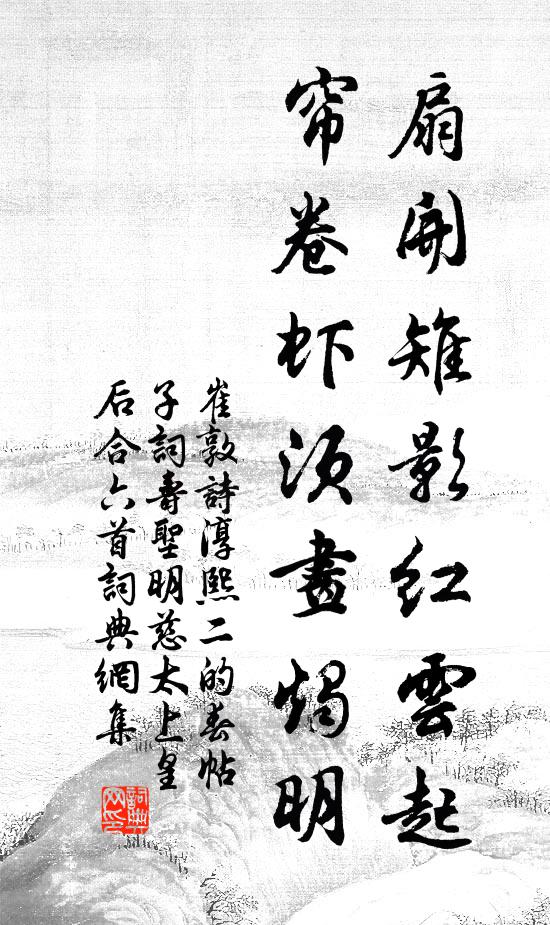 扇開雉影紅雲起
帘卷虾須畫燭明
崔敦詩淳熙二的春帖
子詞壽聖明慈太上皇
后合六首詞典網集
詞典
网印